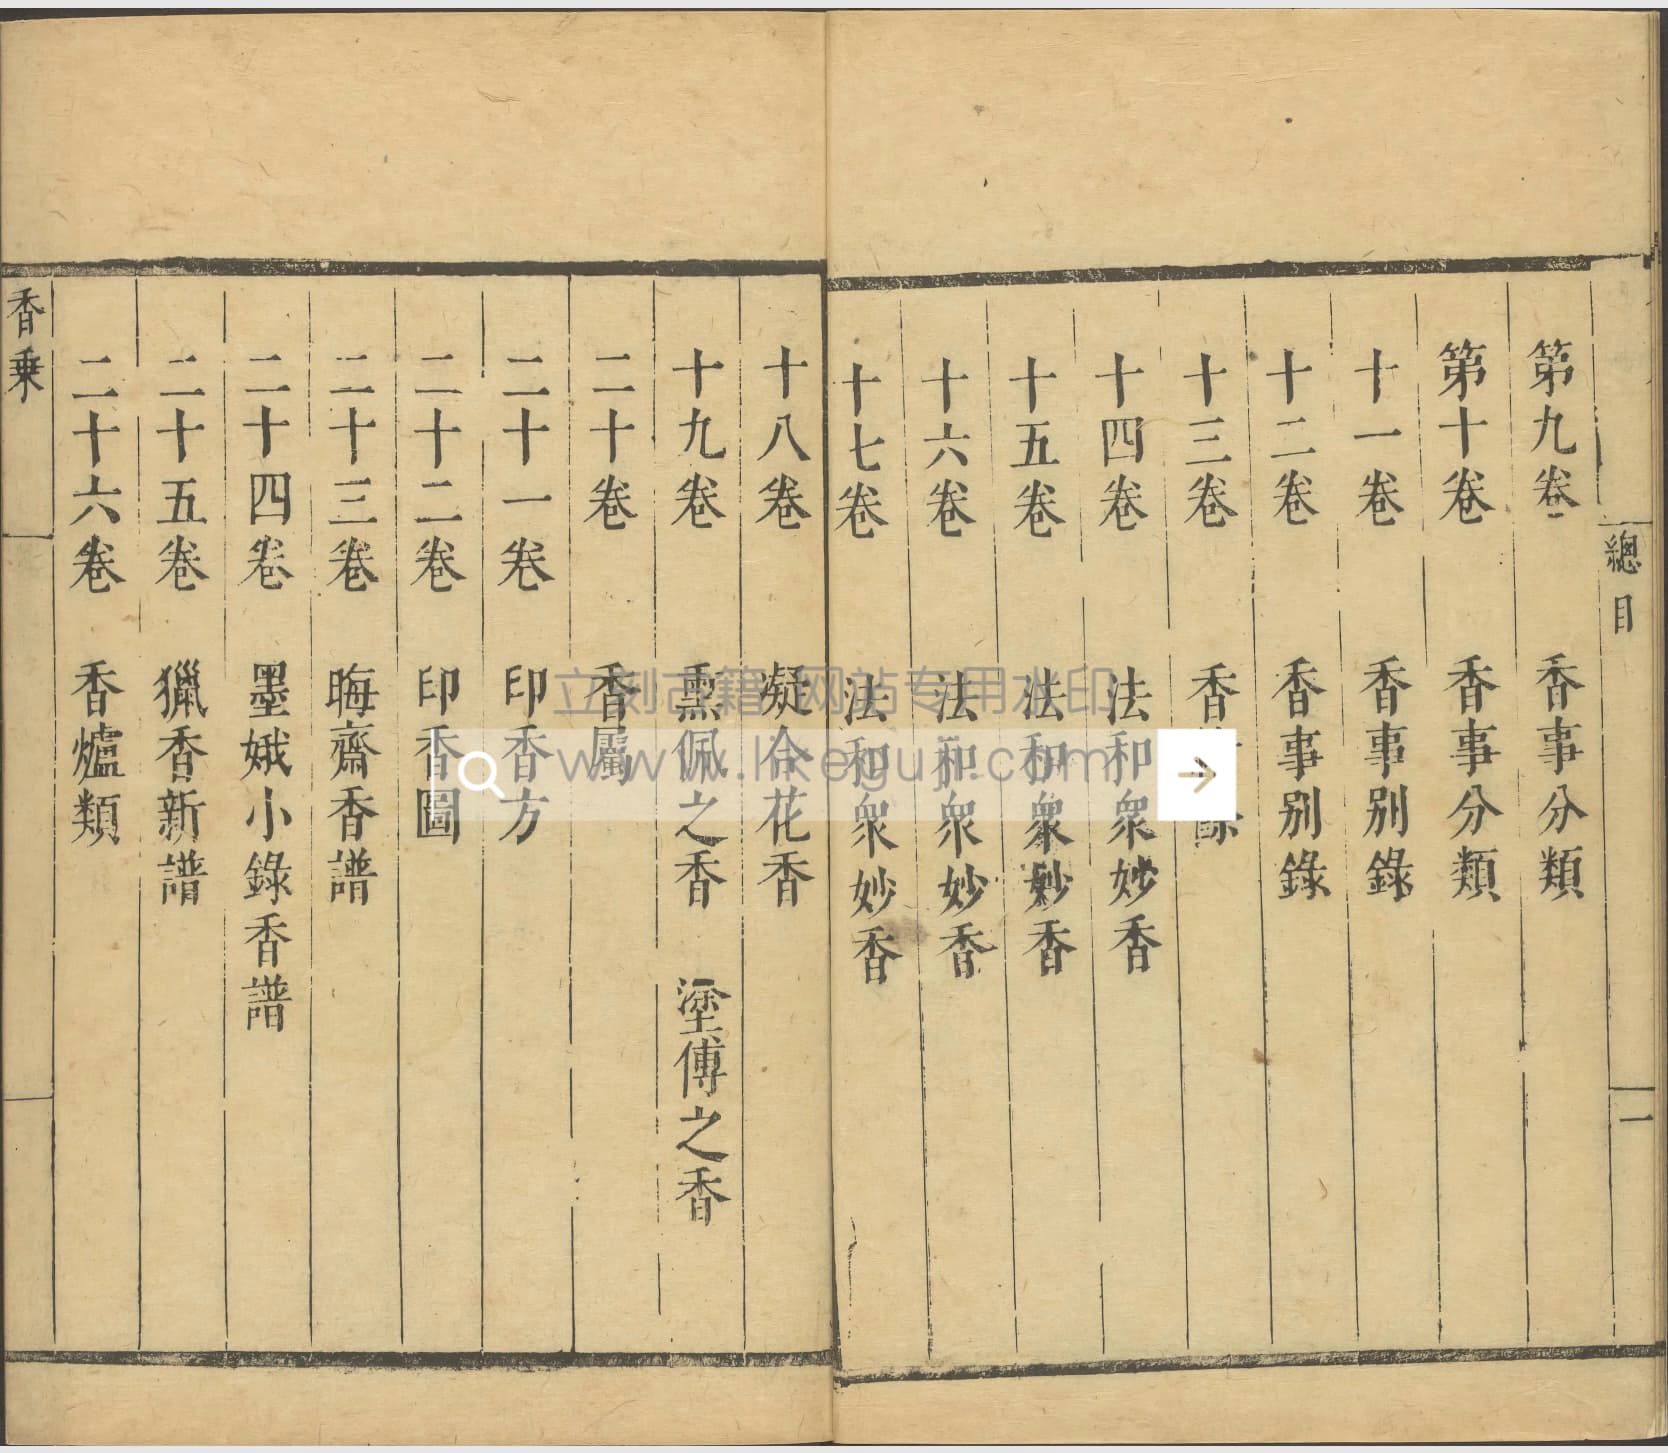 總目
一
第九卷 香事分類
第十卷 香事分類
十一卷 香事別錄
十二卷 香事別錄
十三卷 香
十四卷 法和眾妙香
十五卷 法和眾妙香
十六卷 法和眾妙香
十七卷 法和眾妙香
十八卷 凝合花香
十九卷 熏佩之香 塗傅之香
二十卷 香屬
二十一卷 印香方
二十二卷 印香圖
二十三卷 晦齋香譜
二十四卷 墨娥小錄香譜
二十五卷 獵香新譜
二十六卷 香爐類
香乗
立刻古籍 网站专用水印
www.likeguji.com